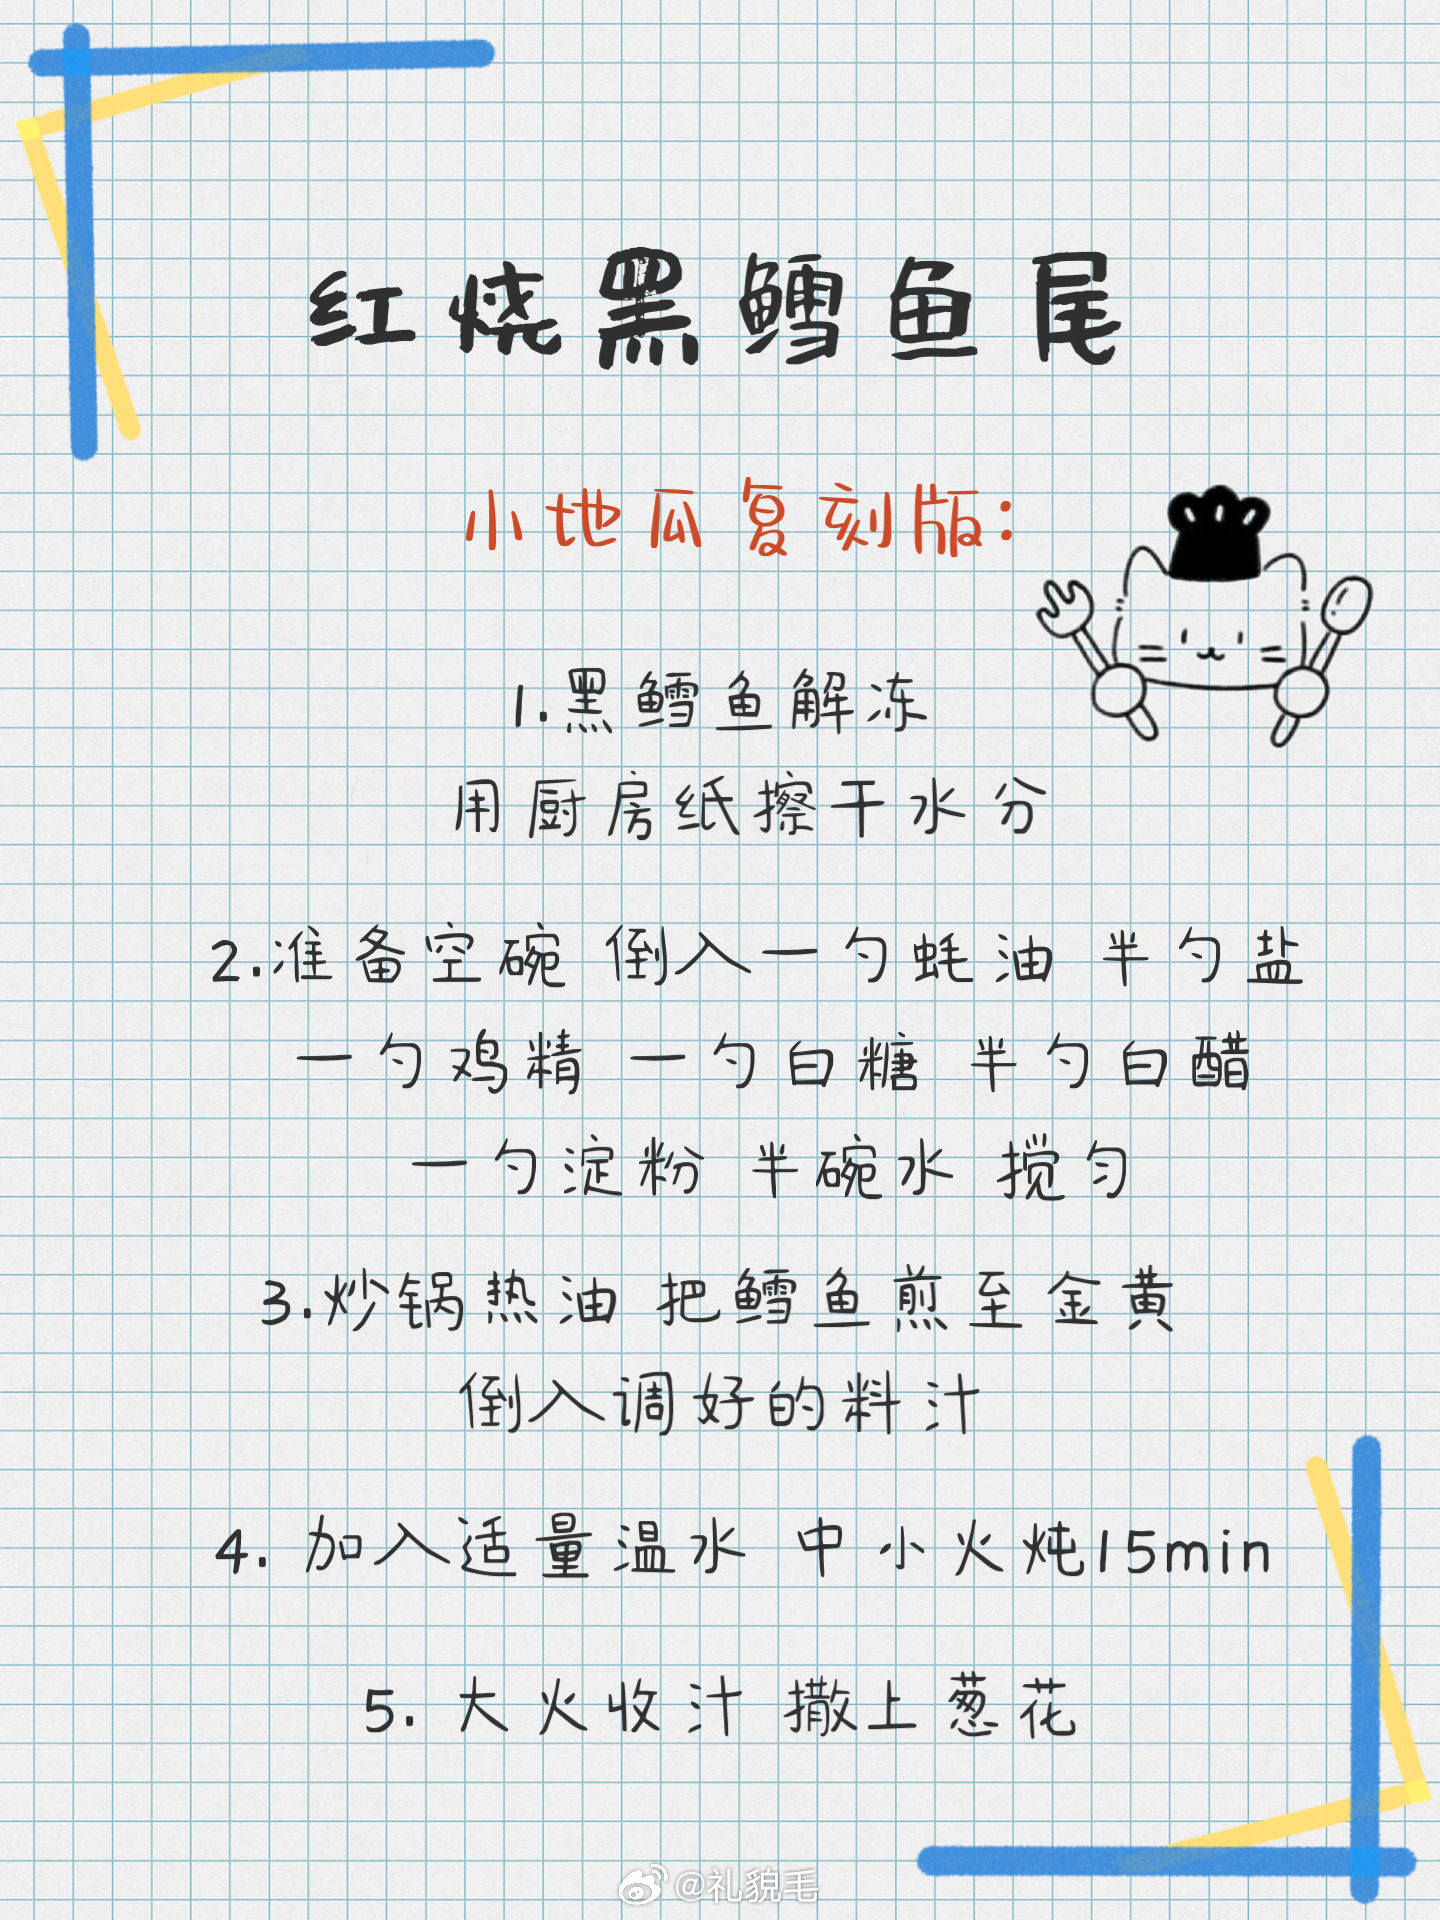 红烧黑鳕鱼尾
小地瓜复刻版:
1.黑鳕鱼解冻
用厨房纸擦干水分
2.准备空碗 倒入一勺蚝油 半勺盐
一勺鸡精 一勺白糖 半勺白醋
一勺淀粉 半碗水 搅匀
3.炒锅热油 把鳕鱼煎至金黄
倒入调好的料汁
4. 加入适量温水 中小火炖15min
5. 大火收汁 撒上葱花
@礼貌毛